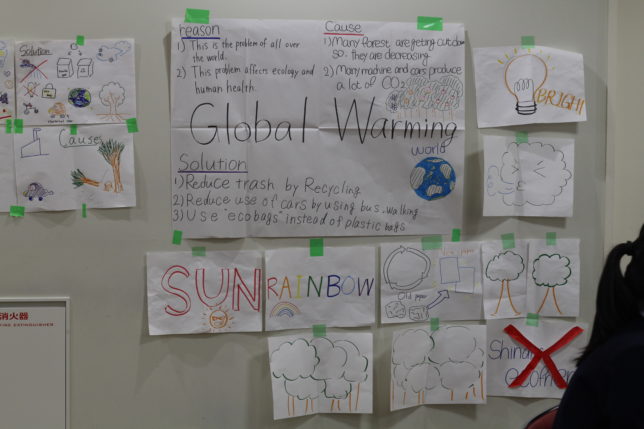 Solution
Causes
reason
1) This is the problem of all over
the world.
2) This problem affects ecology and
human health.
Cause
1) Many forest are geting cutdown
so, they are decreasing.
2) Many machine and cars produce
a lot of CO2
Global Warming
world
Solution
1) Reduce trash by Recycling
2) Reduce use of cars by using bus, walking
3) Use "ecobags" instead of plastic bags
BRIGHT
SUN
RAINBOW
paper
Old paper
消火器
FIRE EXTINGUISHER